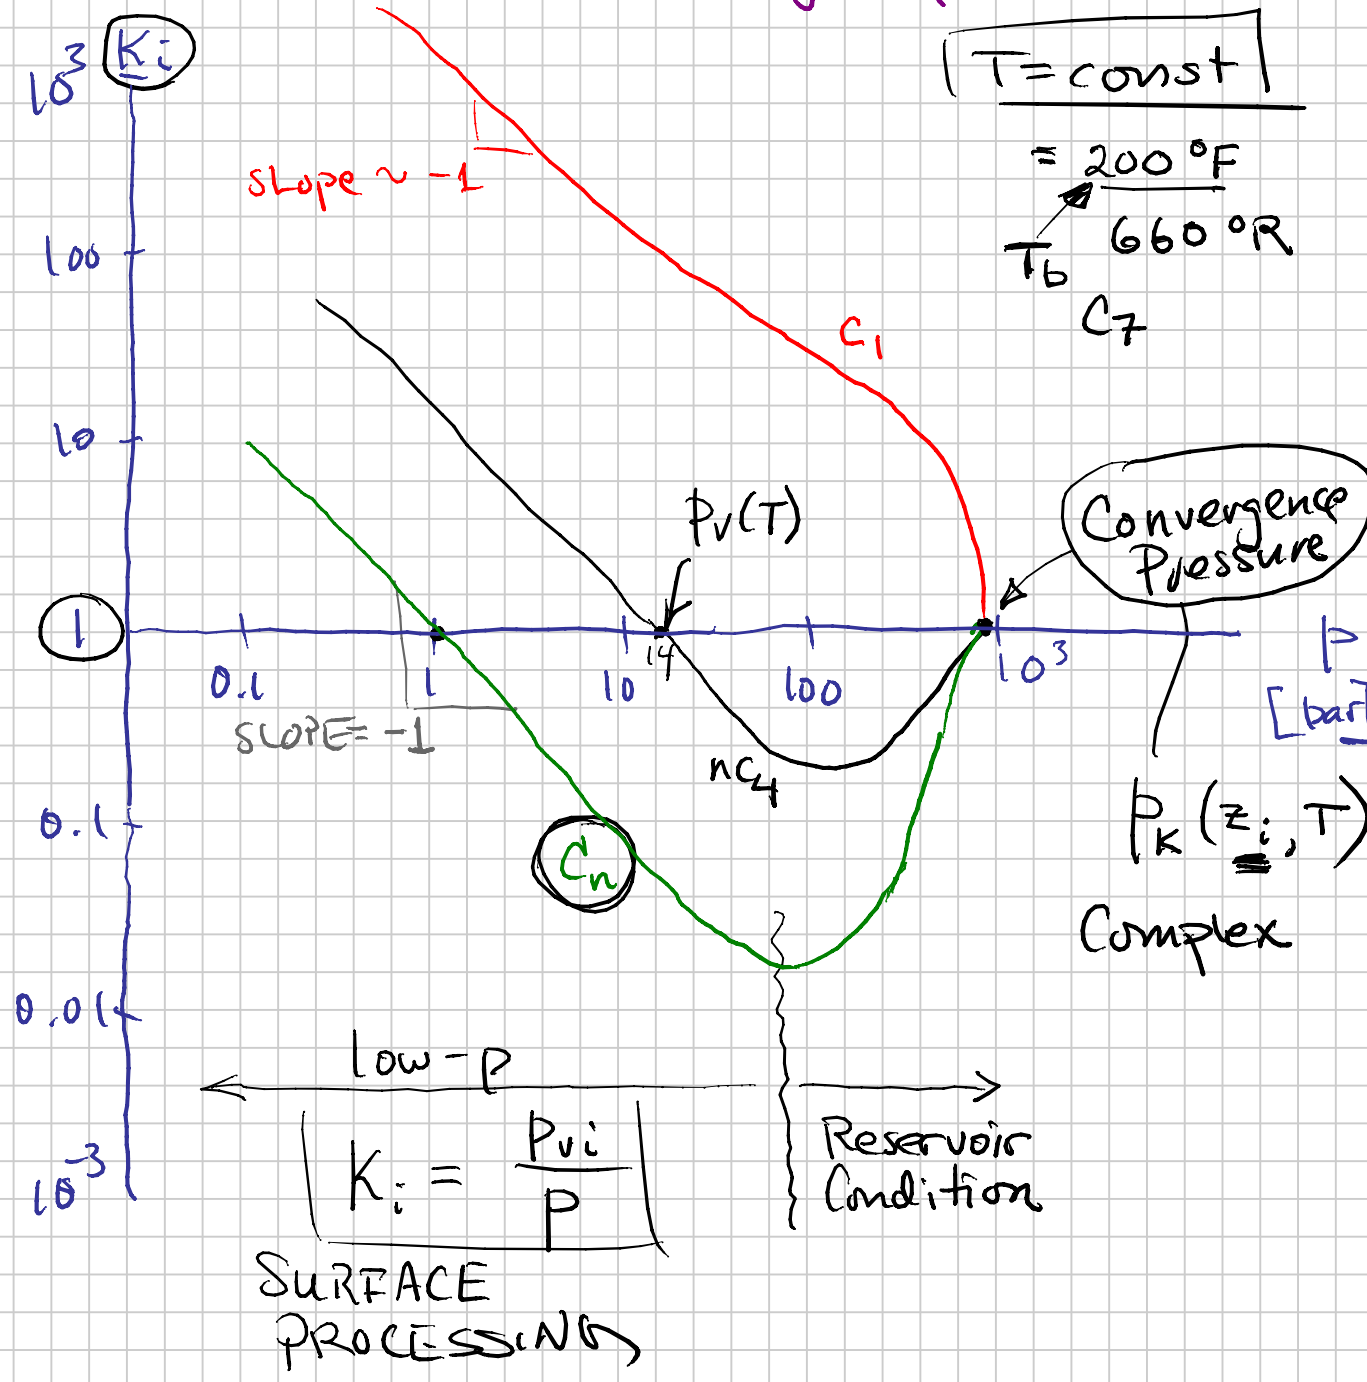 10³ Ki
T = const
= 200 °F
Tb 660 °R
C7
slope ~ -1
100
C1
10
Pv(T)
Convergence
Pressure
1
14
0.1 1 10 100 10³ P
[bar]
SLOPE = -1
nC4
0.1
Cn
PK (zi, T)
Complex
0.01
low-p
Ki = Pvi / P
Reservoir
Condition
10-³
SURFACE
PROCESSING